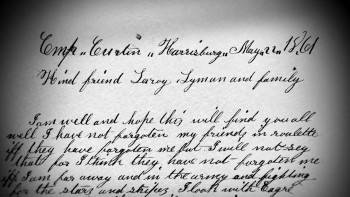 Cmp „ Curtin „ Harrisburg „ May „ 22 „ 1861
Kind friend Laroy Lyman and family
I am well and hope this will find you all
well I have not forgoten my friends in roulette
iff they have forgoten me but I will not say
that for I think they have not forgoten me
iff I am far away and in the army and fighting
for the stars and stripes I look with Eagre